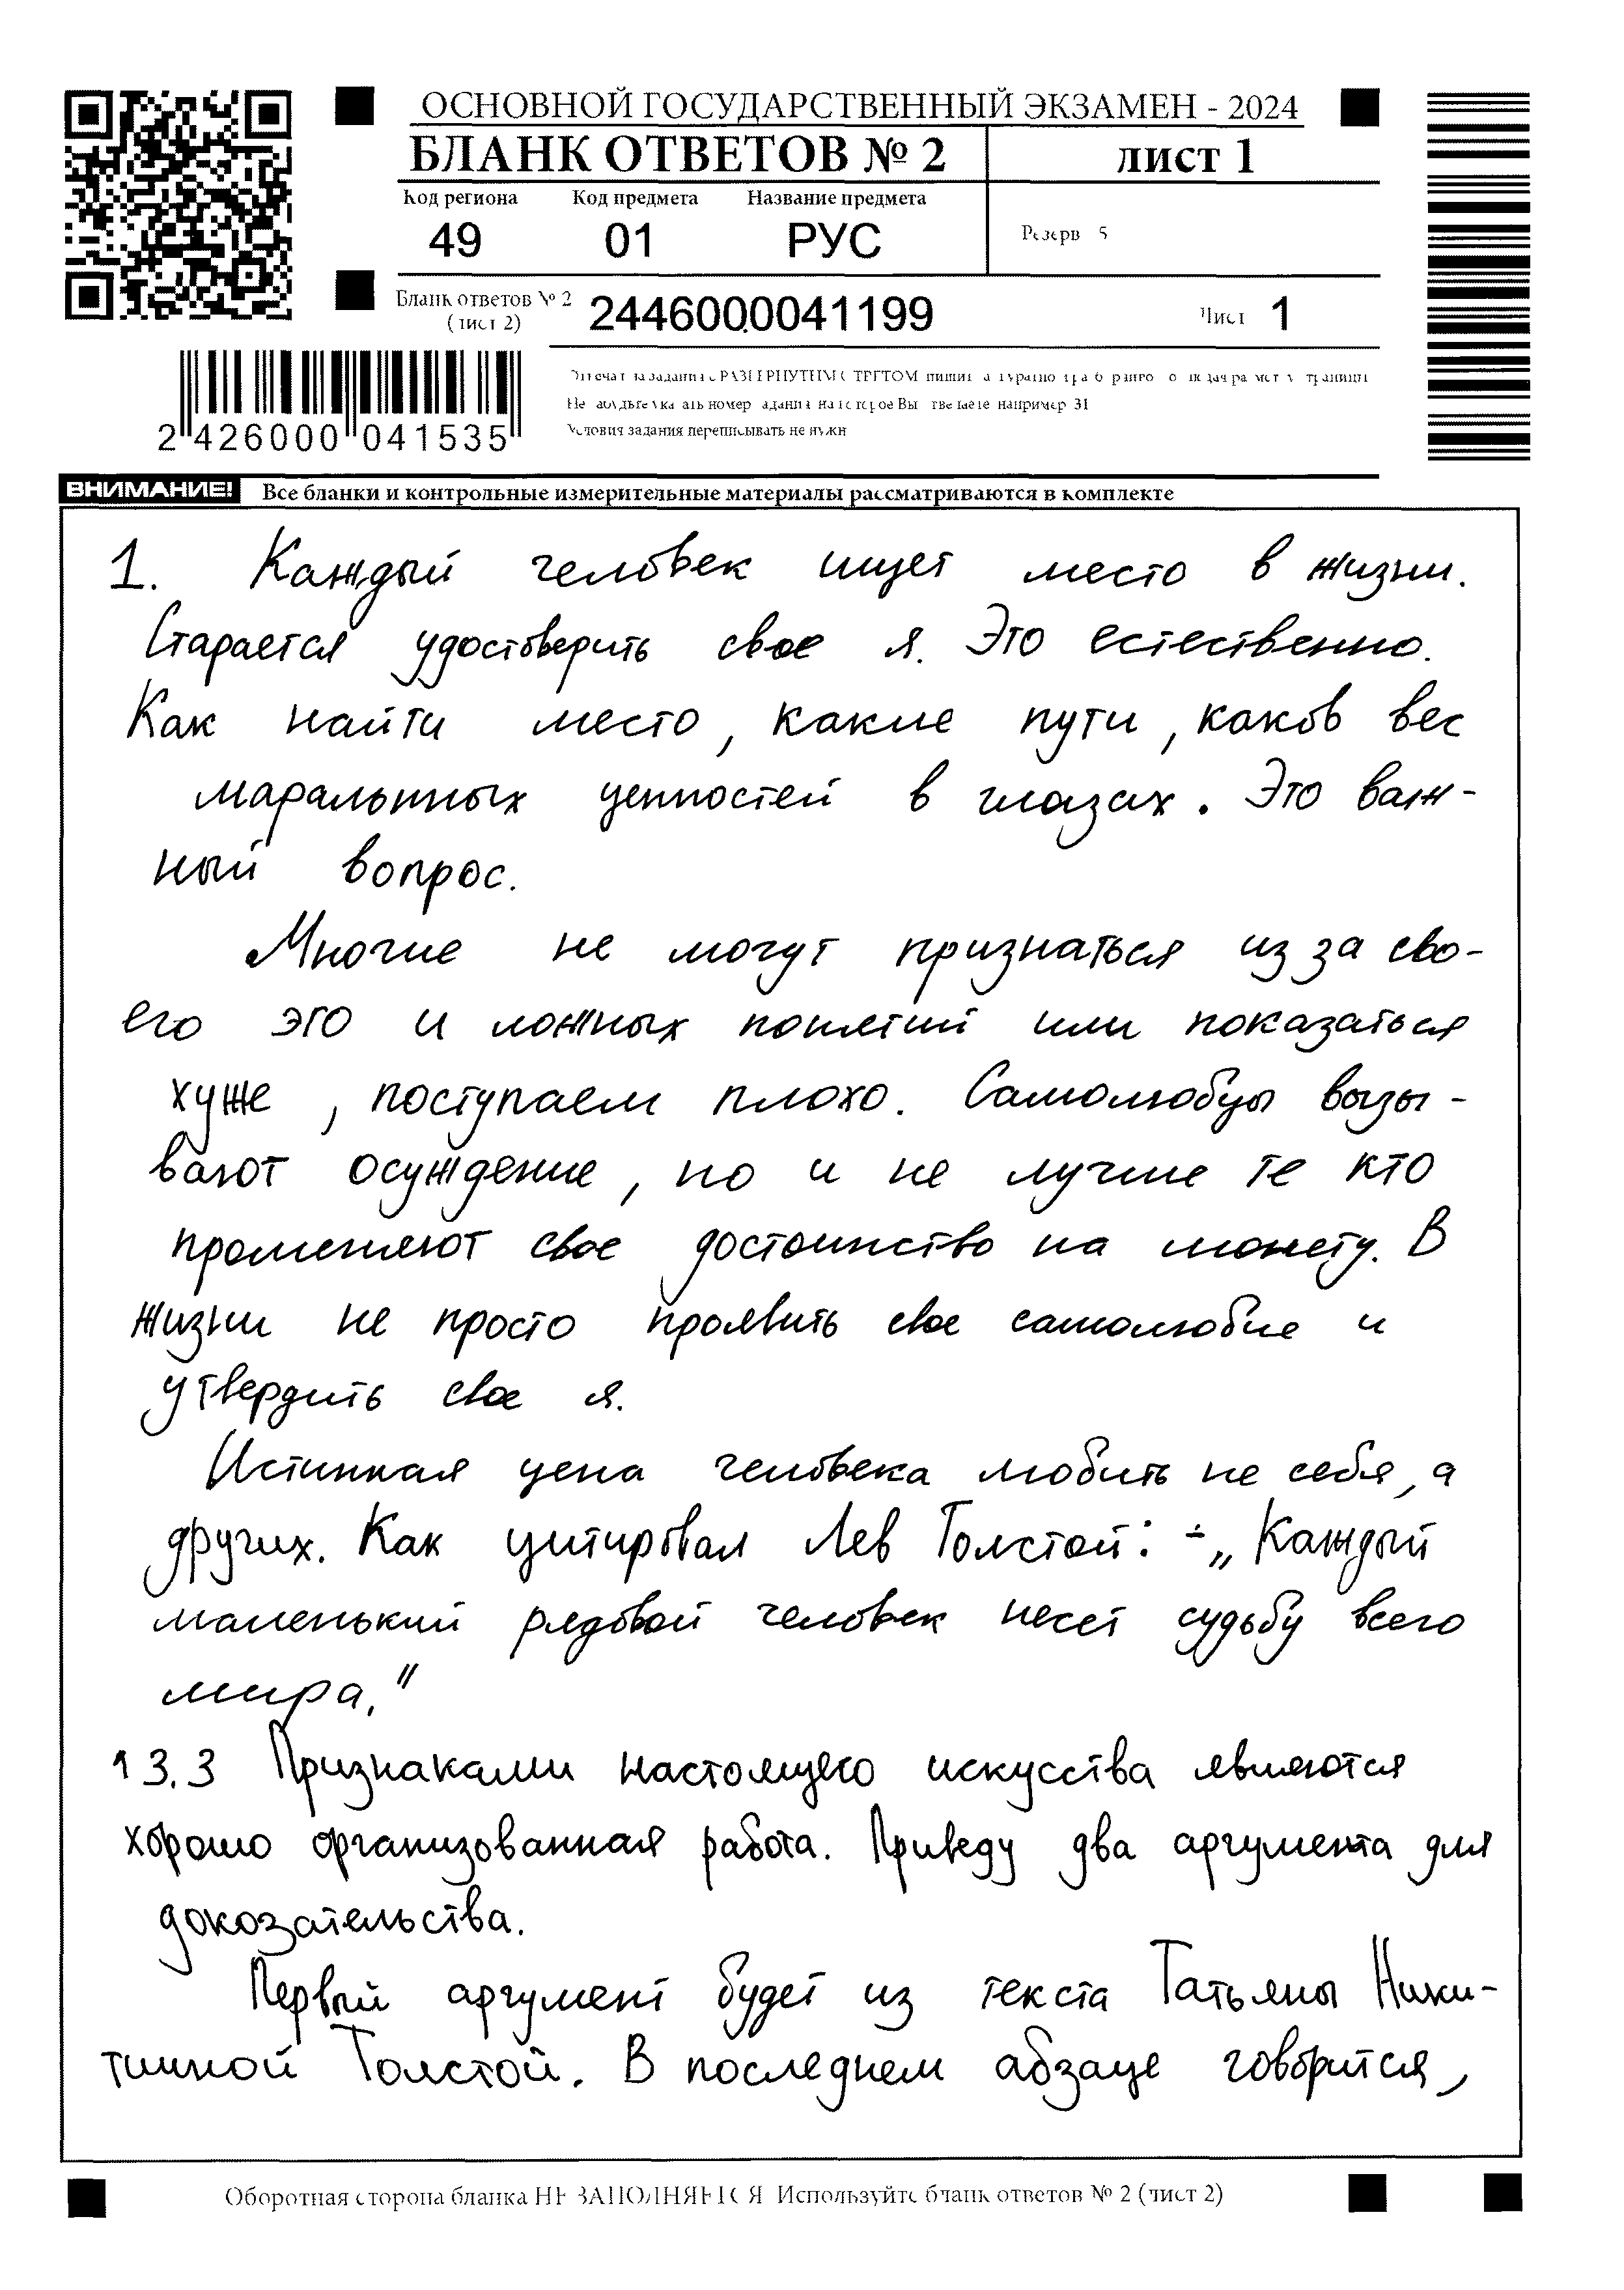 ОСНОВНОЙ ГОСУДАРСТВЕННЫЙ ЭКЗАМЕН - 2024
БЛАНК ОТВЕТОВ № 2
лист 1
Код региона Код предмета Название предмета
49 01 РУС
Резерв 5
Бланк ответов № 2
(лист 2)
2446000041199
Лист 1
2 426000 041535
Условия задания переписывать не нужн
ВНИМАНИЕ! Все бланки и контрольные измерительные материалы рассматриваются в комплекте
1. Каждый человек ищет место в жизни.
Старается удостоверить свое я. Это естественно.
Как найти место, какие пути, каков вес
маральнных ценностей в глазах. Это важ-
ный вопрос.
Многие не могут признаться из за сво-
его эго и ложных понятий или показаться
хуже, поступаем плохо. Самолюбцы вызы-
вают осуждение, но и не лучше те кто
променяют свое достоинство на монету. В
жизни не просто проявить свое самолюбие и
утвердить свое я.
Истинная цена человека любить не себя, а
других. Как цитировал Лев Толстой: - „Каждый
маленький рядовой человек несет судьбу всего
мира."
13.3 Признаками настоящего искусства являются
хорошо организованная работа. Приведу два аргумента для
докозательства.
Первый аргумент будет из текста Татьяны Ники-
тичной Толстой. В последнем абзаце говорится,
Оборотная сторона бланка НЕ ЗАПОЛНЯЕТСЯ Используйте бланк ответов № 2 (лист 2)